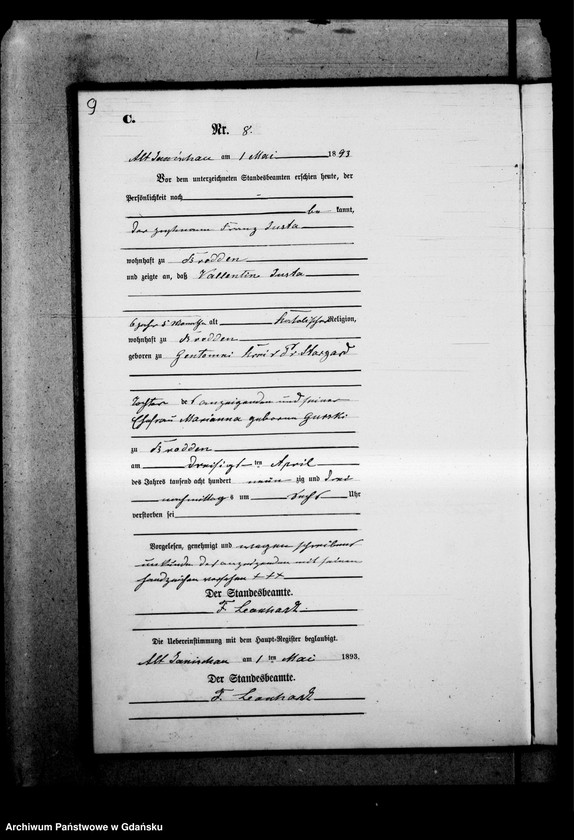 9
C.
Nr. 8
Alt Janischau am 1 Mai 1893
Vor dem unterzeichneten Standesbeamten erschien heute, der
Persönlichkeit nach
be kannt,
der Franz Justa
wohnhaft zu Brodden
und zeigte an, daß Vallentine Justa
6 Jahr 5 Monathe alt Katolischer Religion,
wohnhaft zu Brodden
geboren zu Kreis Pr Stargard
Tochter des anzeigenden und seiner
Ehefrau Marianna geborene Gurski
zu Brodden
am dreisigt ten April
des Jahres tausend acht hundert neun zig und drei
nachmittag s um sechs Uhr
verstorben sei
Vorgelesen, genehmigt und wegen schreibens
unkunde des anzeigenden mit seinen
handzeichen versehen +++
Der Standesbeamte.
F. Leonhardt
Die Uebereinstimmung mit dem Haupt-Register beglaubigt.
Alt Janischau am 1 ten Mai 1893.
Der Standesbeamte.
F. Leonhardt
Archiwum Państwowe w Gdańsku